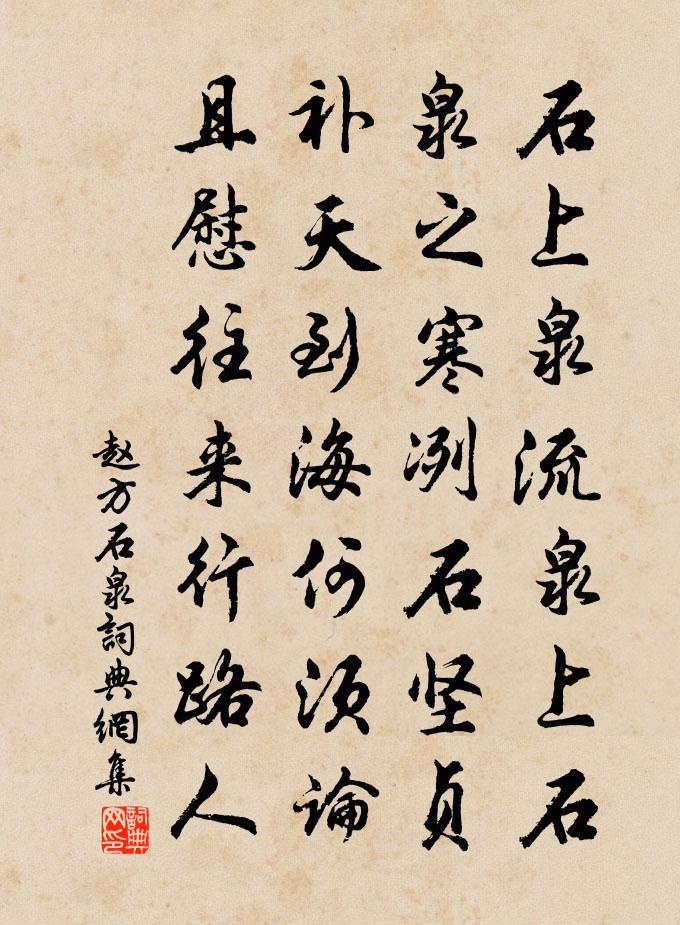 石上泉流泉上石
泉之寒冽石坚贞
补天到海何须論
且慰往来行路人
赵方石泉詞典網集
詞典网印